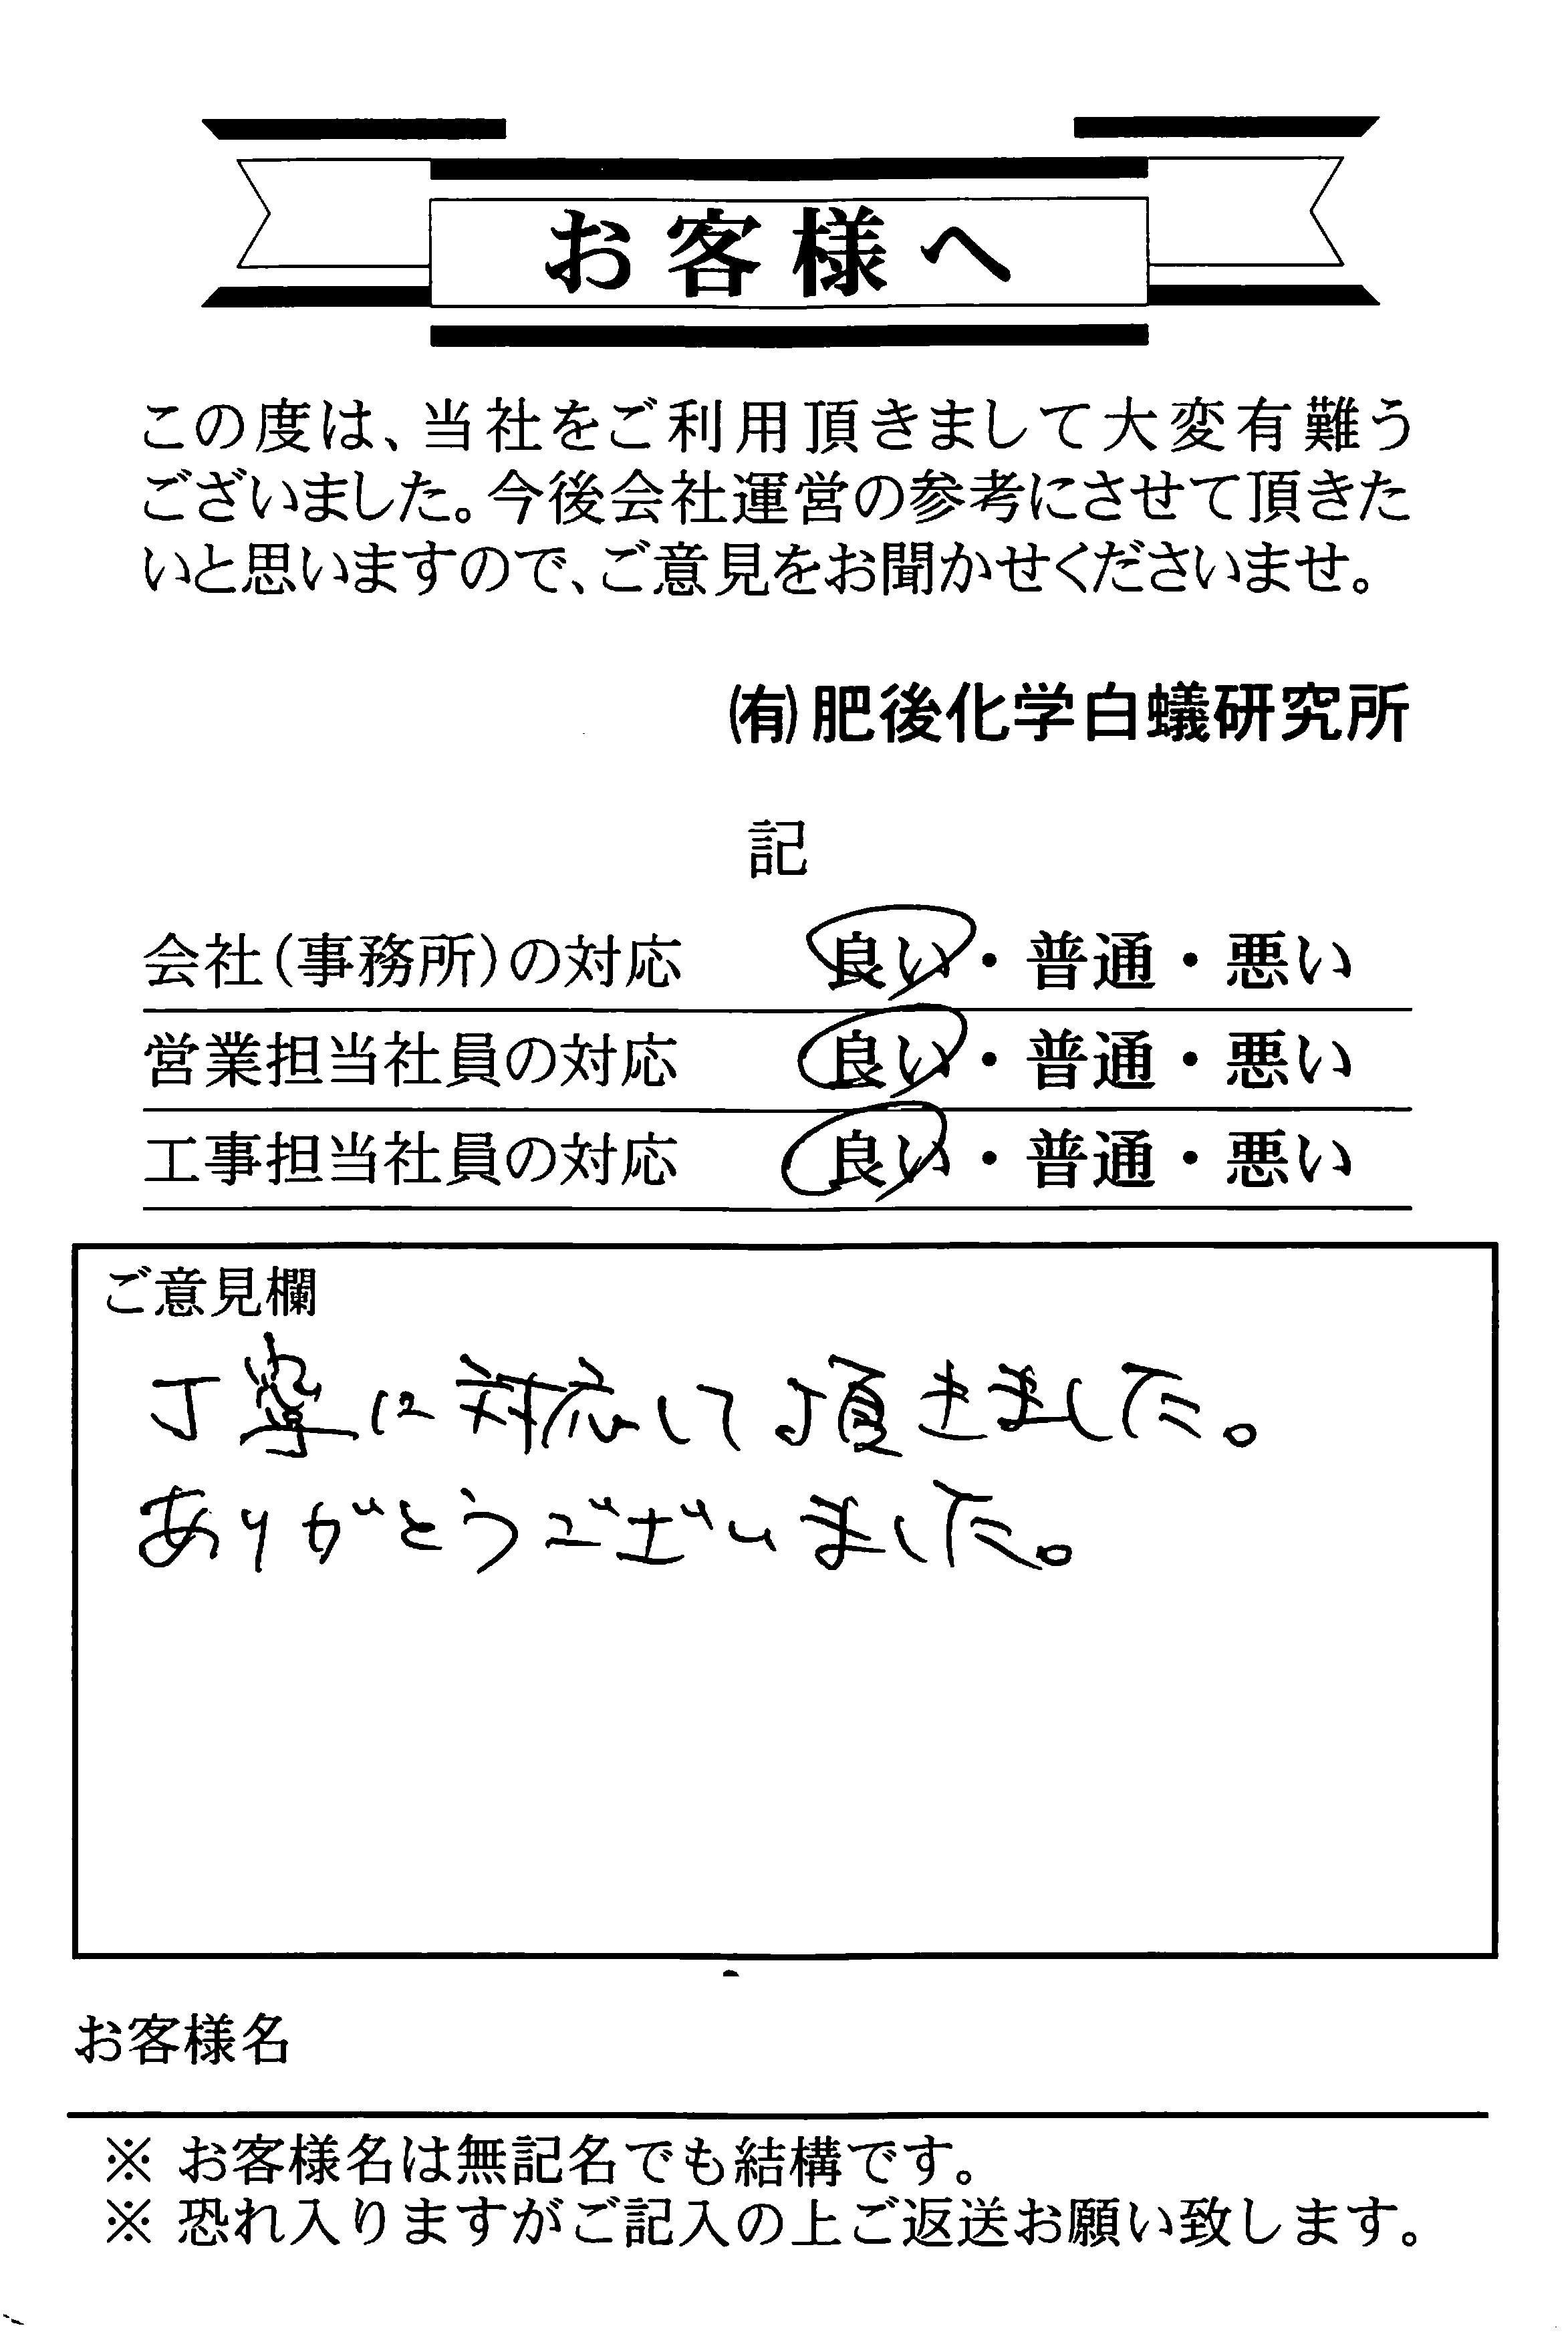 お客様へ
この度は、当社をご利用頂きまして大変有難う
ございました。今後会社運営の参考にさせて頂きた
いと思いますので、ご意見をお聞かせくださいませ。
㈲肥後化学白蟻研究所
記
会社(事務所)の対応 良い・普通・悪い
営業担当社員の対応 良い・普通・悪い
工事担当社員の対応 良い・普通・悪い
ご意見欄
丁寧に対応して頂きました。
ありがとうございました。
お客様名
※ お客様名は無記名でも結構です。
※ 恐れ入りますがご記入の上ご返送お願い致します。